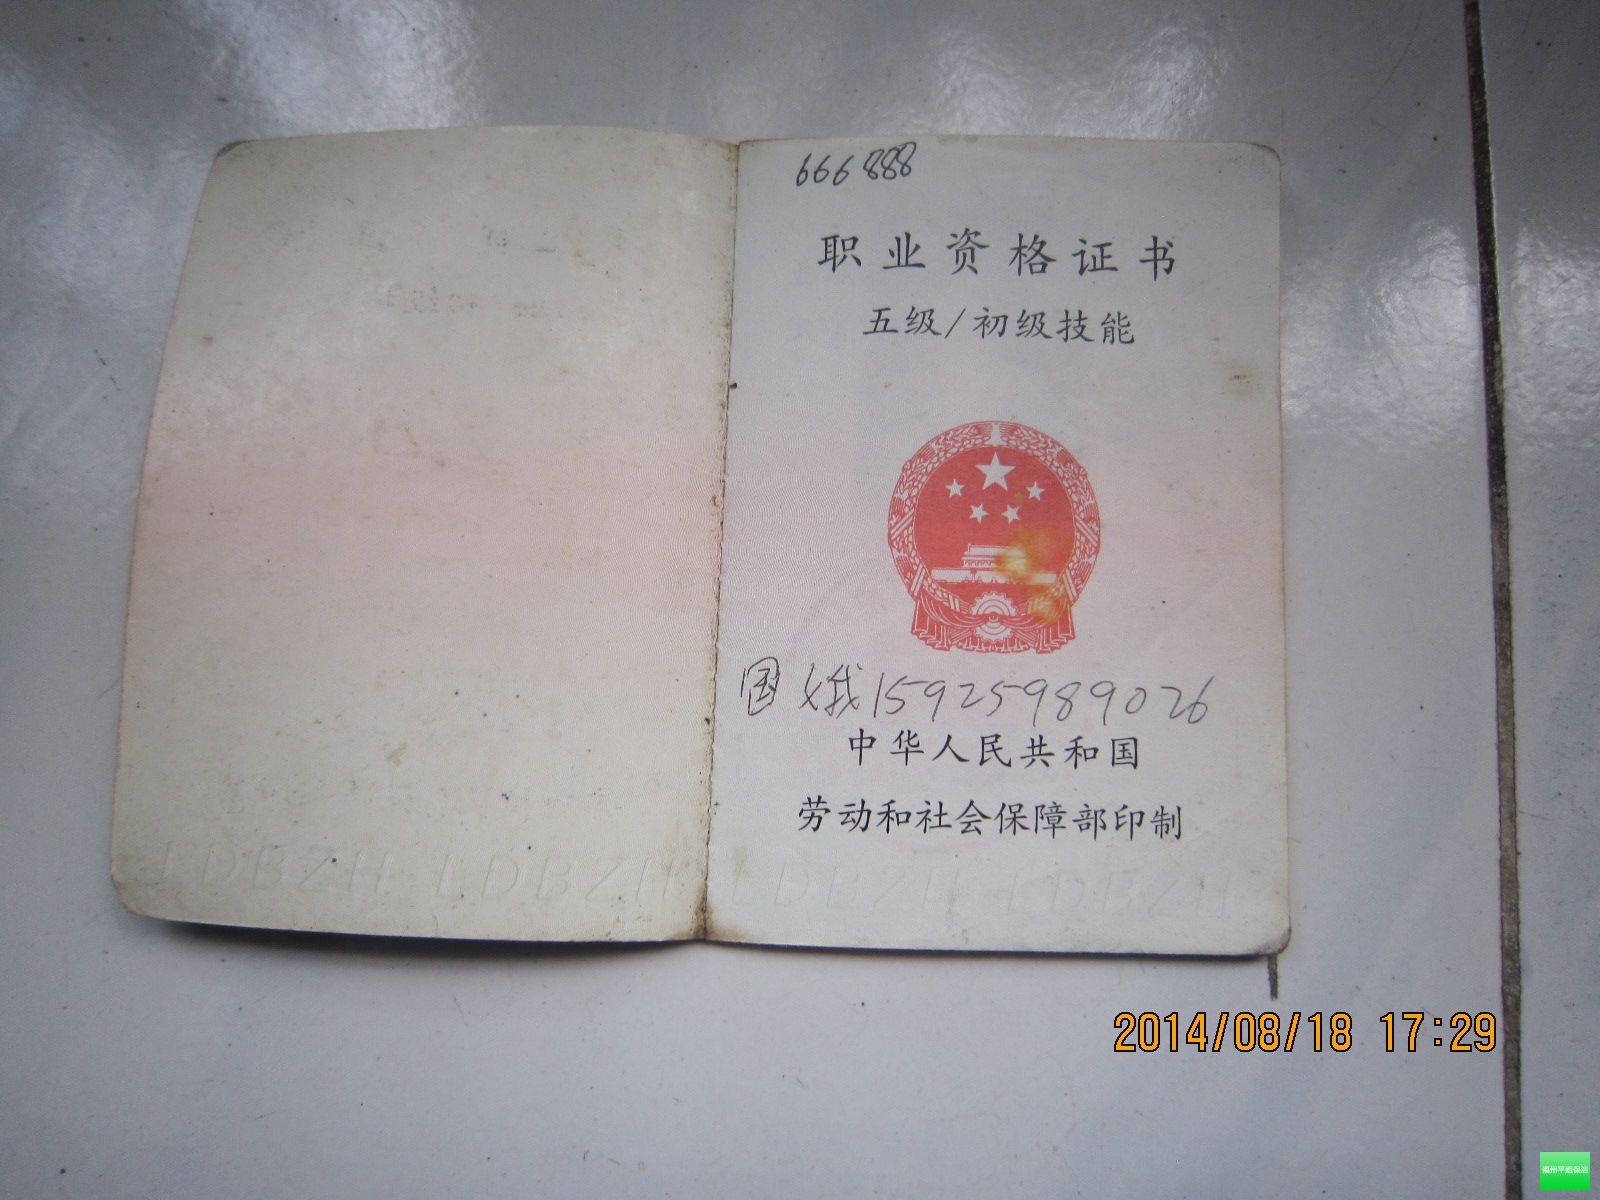 666888
职业资格证书
五级/初级技能
国娥15925989026
中华人民共和国
劳动和社会保障部印制
LDBZH LDBZH LDBZH LDBZH
2014/08/18 17:29
福州平姐保洁